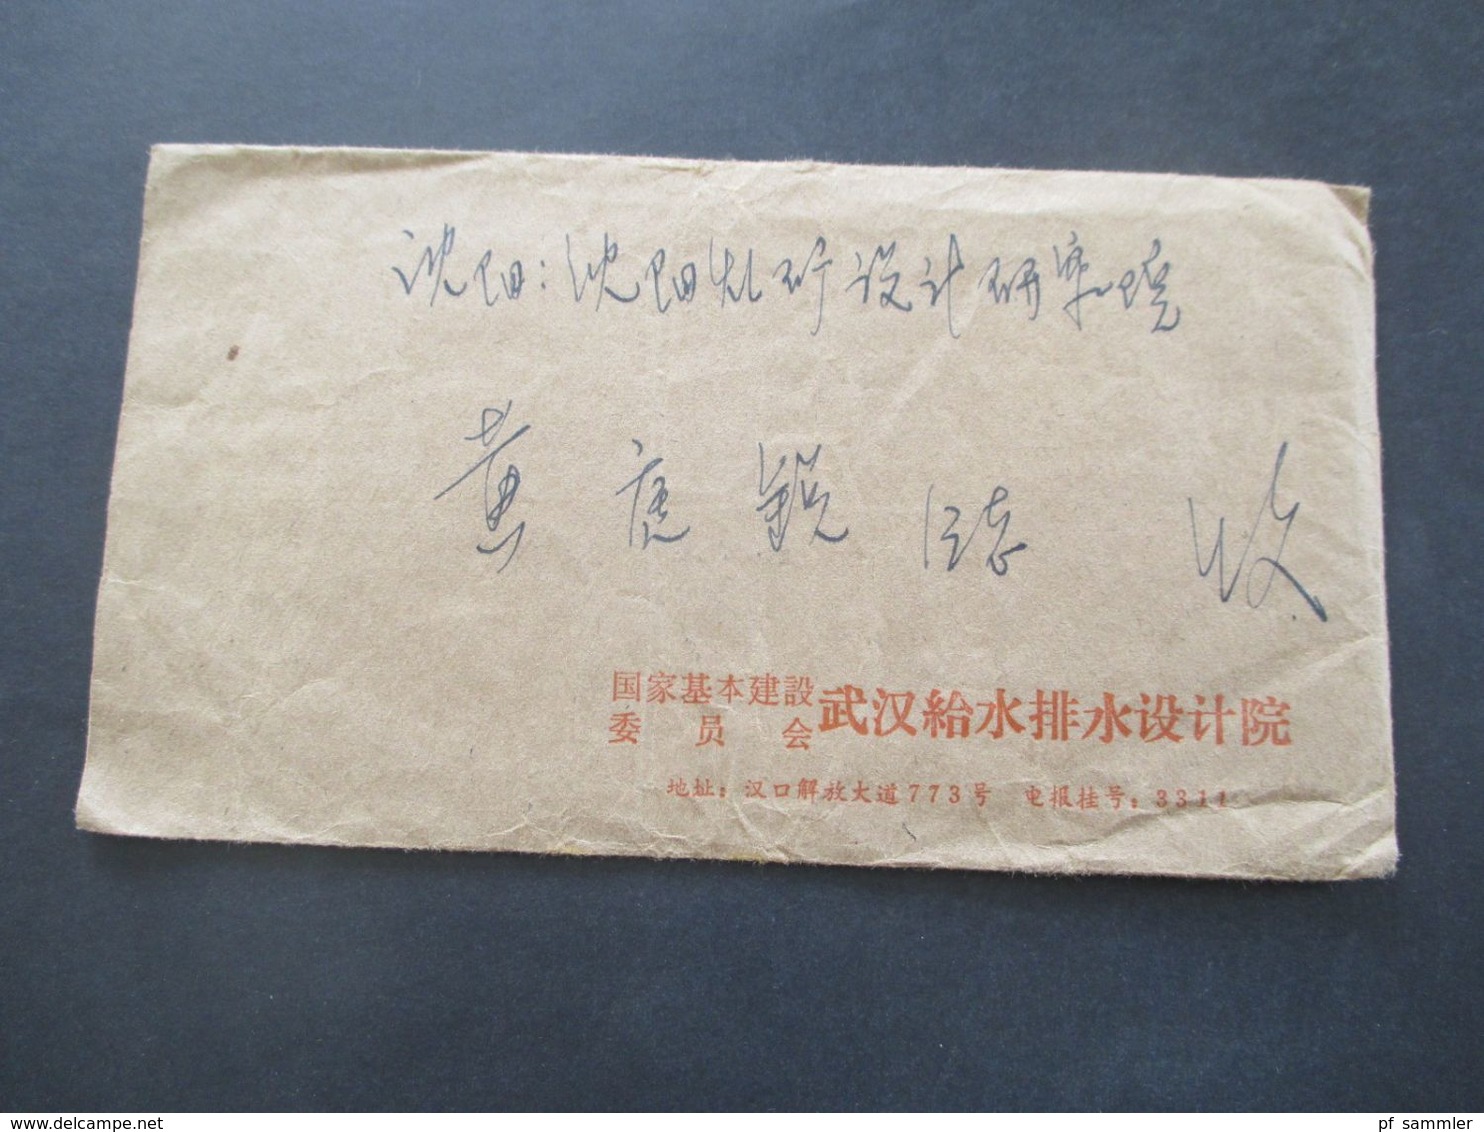 沈阳：沈阳矿设计研究院
黄 同志 收
国家基本建設
委员会
武汉給水排水设计院
地址：汉口解放大道773号 电报挂号：3311
delcampe.net
pf_sammler